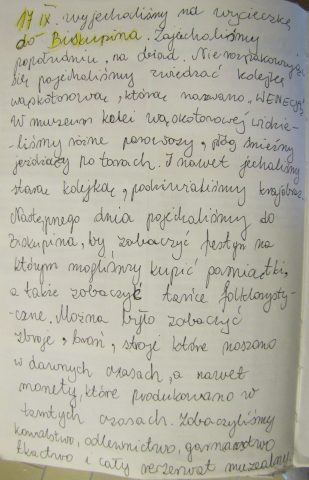 17 IX. wyjechaliśmy na wycieczkę
do Biskupina. Zajechaliśmy
popołudniu, na obiad. Nie rozpakowując
się pojechaliśmy zwiedzać kolejkę
wąskotorową, którą nazwano „WENECJĄ".
W muzeum kolei wąskotorowej widzie-
-liśmy różne parowozy, pług śnieżny
jeżdżący po torach. I nawet jechaliśmy
starą kolejką, podziwialiśmy krajobraz.
Następnego dnia pojechaliśmy do
Biskupina, by zobaczyć festyn na
którym mogliśmy kupić pamiątki,
a także zobaczyć tańce folklorysty-
-czne. Można było zobaczyć
zbroje, broń, stroje które noszono
w dawnych czasach, a nawet
monety, które produkowano w
tamtych czasach. Zobaczyliśmy
kowalstwo, odlewnictwo, garncarstwo
tkactwo i cały rezerwat muzealny